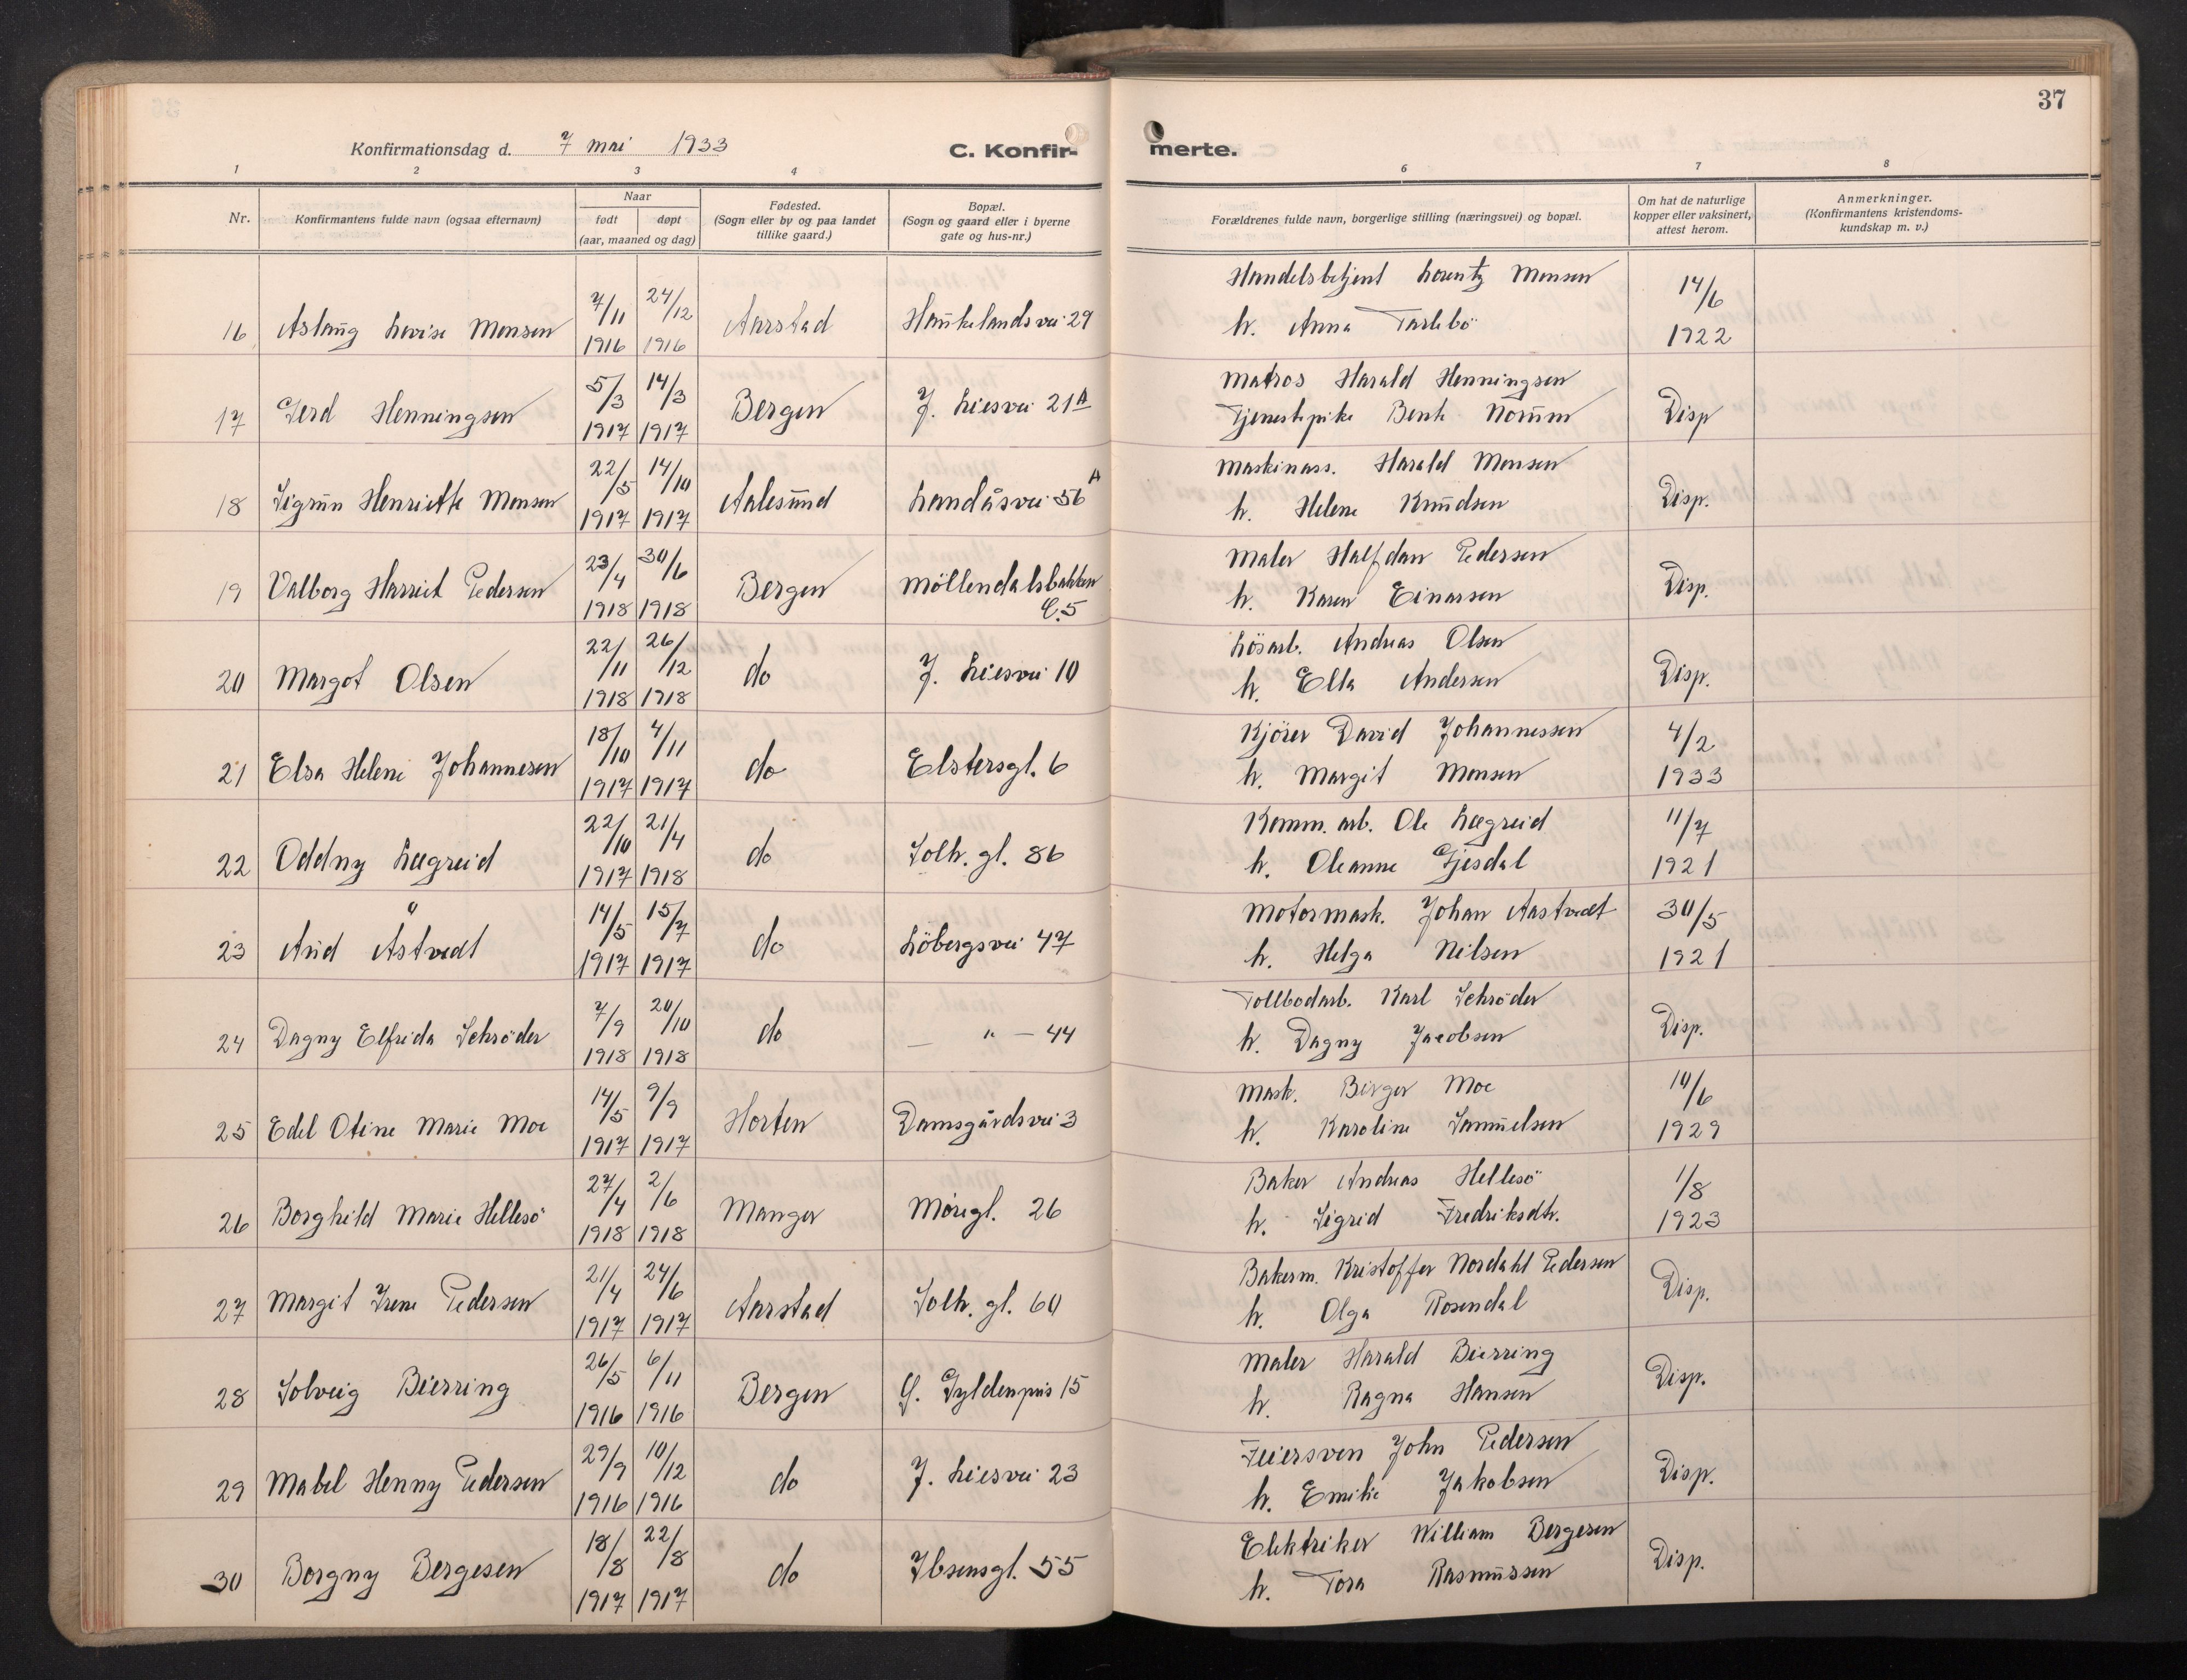 37
Konfirmationsdag d. 7 mai 1933
C. Konfirmerte.
1 2 3 4 6 7 8
Nr.
Konfirmantens fulde navn (ogsaa efternavn)
Naar
født døpt
(aar, maaned og dag)
Fødested.
(Sogn eller by og paa landet
tillike gaard.)
Bopæl.
(Sogn og gaard eller i byerne
gate og hus-nr.)
Forældrenes fulde navn, borgerlige stilling (næringsvei) og bopæl.
Om hat de naturlige
kopper eller vaksinert,
attest herom.
Anmerkninger.
(Konfirmantens kristendoms-
kundskap m. v.)
7/11 24/12 Handelsbetjent Lorentz Monsen 14/6
16 Aslaug Lovise Monsen 1916 1916 Aarstad Haukelandsvei 29 h. Anna Tarlebö 1922
5/3 14/3 Matros Harald Henningsen
17 Gerd Henningsen 1917 1917 Bergen J. Liesvei 21A Tjenestepike Bente Norum Disp
22/5 14/10 Maskinass. Harald Monsen
18 Sigrun Henriette Monsen 1917 1917 Aalesund Landåsvei 56A h. Helene Knudsen Disp.
23/4 30/6 Maler Halfdan Pedersen
19 Valborg Harriet Pedersen 1918 1918 Bergen Möllendalsbakken C.5 h. Karen Einarsen Disp.
22/11 26/12 Lösarb. Andreas Olsen
20 Margot Olsen 1918 1918 do J. Liesvei 10 h. Ella Andersen Disp.
18/10 4/11 Kjörer David Johannessen 4/2
21 Elsa Helene Johannesen 1917 1917 do Elstersgt. 6 h. Margit Monsen 1933
22/10 21/4 Komm. arb. Ole Lægreid 11/7
22 Oddny Lægreid 1917 1918 do Solh. gt. 86 h. Oleanne Gjesdal 1921
14/5 15/7 Motormask. Johan Aastvedt 30/5
23 Aud Åstvedt 1917 1917 do Löbergsvei 47 h. Helga Nilsen 1921
7/9 20/10 Tollbodarb. Karl Schröder
24 Dagny Elfrida Schröder 1918 1918 do — " — 44 h. Dagny Jacobsen Disp.
14/5 9/9 Mask. Birger Moe 10/6
25 Edel Otine Marie Moe 1917 1917 Horten Damsgårdsvei 3 h. Karoline Samuelsen 1929
27/4 2/6 Baker Andreas Hellesö 1/8
26 Borghild Marie Hellesö 1918 1918 Manger Möregt. 26 h. Sigrid Fredriksdtr. 1923
21/4 24/6 Bakerm. Kristoffer Nordahl Pedersen
27 Margit Irene Pedersen 1917 1917 Aarstad Solh. gt. 60 h. Olga Rosendal Disp.
26/5 6/11 Maler Harald Bierring
28 Solveig Bierring 1916 1916 Bergen G. Gyldenpris 15 h. Ragna Hansen Disp.
29/9 10/12 Feiersven John Pedersen
29 Mabel Henny Pedersen 1916 1916 do J. Liesvei 23 h. Emilie Jakobsen Disp.
18/8 22/8 Elektriker William Bergesen
30 Borgny Bergesen 1917 1917 do Ibsensgt. 55 h. Tora Rasmussen Disp.